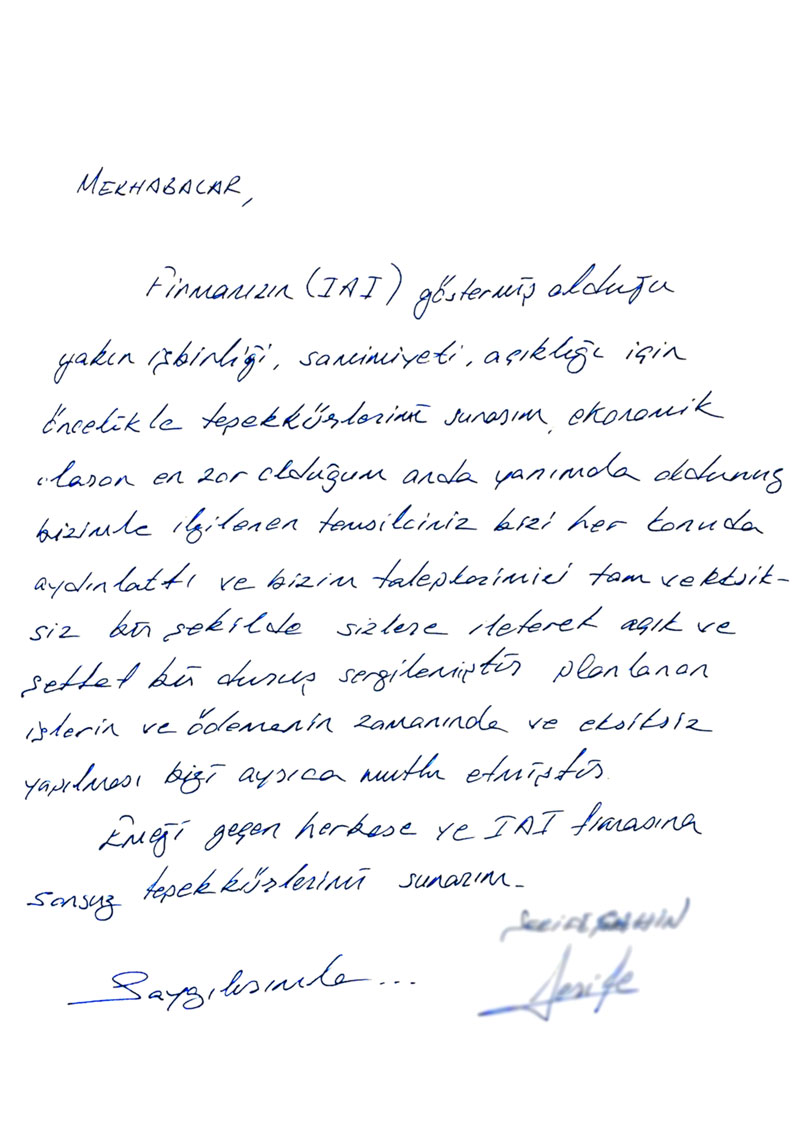 MERHABALAR,
Firmanızın (IAI) göstermiş olduğu
yakın işbirliği, samimiyeti, açıklığı için
öncelikle teşekkürlerimi sunarım, ekonomik
olarak en zor olduğum anda yanımda oldunuz
bizimle ilgilenen temsilciniz bizi her konuda
aydınlattı ve bizim taleplerimizi tam ve eksik-
siz bir şekilde sizlere ileterek açık ve
şeffaf bir duruş sergilemiştir planlanan
işlerin ve ödemenin zamanında ve eksiksiz
yapılması bizi ayrıca mutlu etmiştir.
Emeği geçen herkese ve IAI firmasına
sonsuz teşekkürlerimi sunarım.
Saygılarımla...